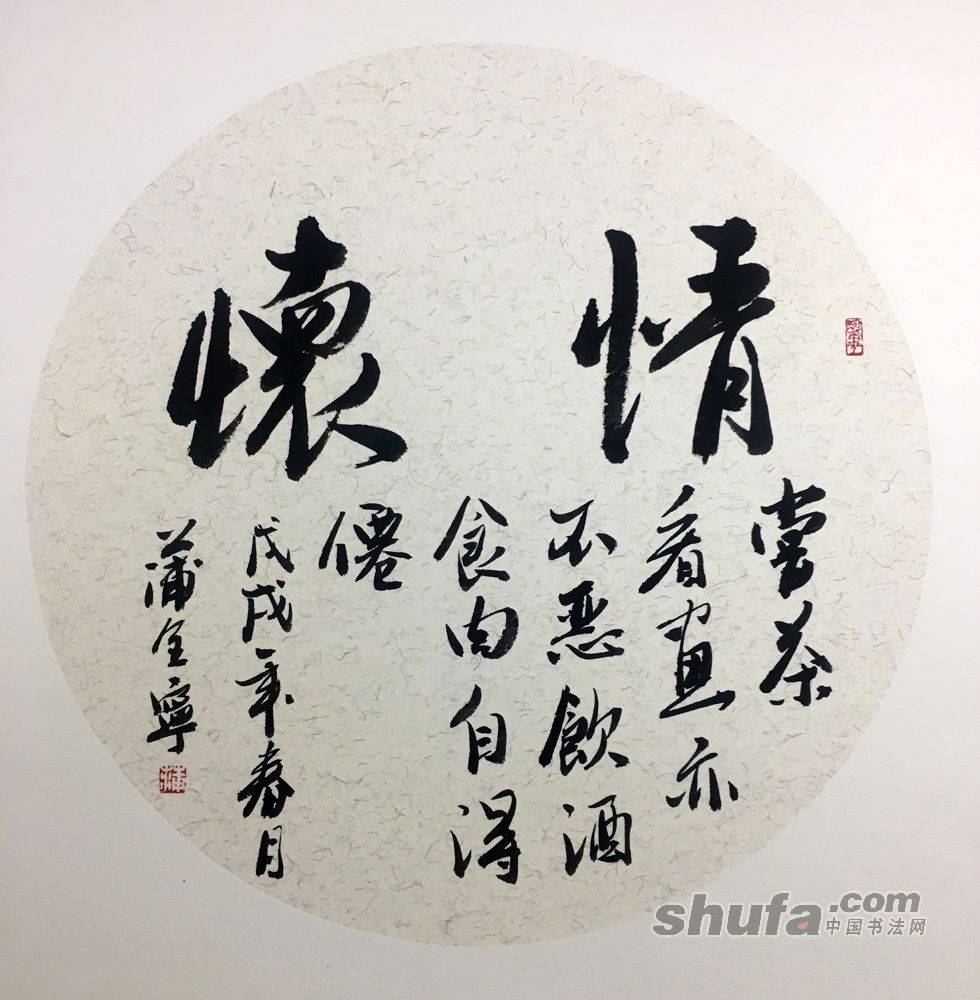 情懷
嘗茶
看畫亦
不惡飲酒
食肉自得
僊
戊戌年春月
蒲全寧
shufa.com
中国书法网